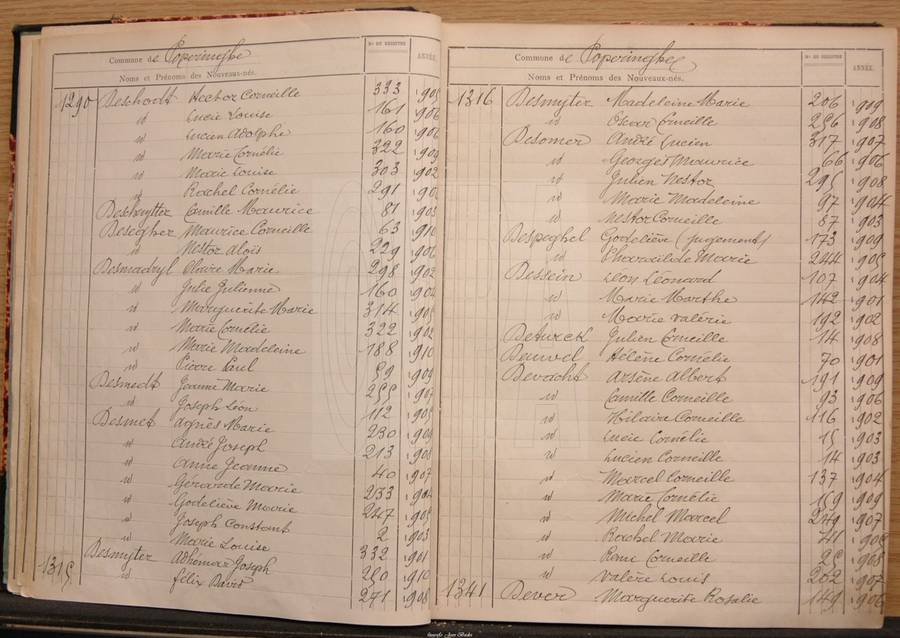 Commune de Poperinghe
Nos DU REGISTRE
ANNÉE.
Noms et Prénoms des Nouveaux-nés.
1290 Deschodt Hector Corneille 333 1905
id Lucie Louise 161 1906
id Lucien Adolphe 160 1906
id Marie Cornélie 322 1909
id Marie Louise 303 1902
id Rachel Cornélie 291
Deschuytter Camille Maurice 81 1903
Deseigher Maurice Corneille 63 1910
id Nestor Aloïs 229 1906
Desmadryl Claire Marie 298 1902
id Julie Julienne 160 1904
id Marguérite Marie 314 1905
id Marie Cornélie 322 1902
id Marie Madeleine 188 1910
id Pierre Paul 59 1909
Desmedt Jeanne Marie 255
id Joseph Léon 112 1905
Desmet Agnès Marie 230 1909
id André Joseph 213 1908
id Anne Jeanne 40 1907
id Gérarde Marie 233 1904
id Godeliève Marie 247 1905
id Joseph Constant 2 1903
id Marie Louise 332 1901
Desmyter Adhémar Joseph 250 1910
1315 id Félix David 271 1908
Commune de Poperinghe
Nos DU REGISTRE
ANNÉE.
Noms et Prénoms des Nouveaux-nés.
1316 Desmyter Madeleine Marie 206 1909
id Oscar Corneille 256 1908
Desomer André Lucien 317 1907
id Georges Maurice 66 1906
id Julien Nestor 295 1908
id Marie Madeleine 97 1904
id Nestor Corneille 87 1903
Despeghel Godeliève (jugement) 173 1909
id Pharaïlde Marie 244 1905
Dessein Léon Léonard 107 1904
id Marie Marthe 142 1901
id Marie Valérie 192 1902
Deturck Julien Corneille 14 1908
Deuwel Hélène Cornélie 70 1901
Devacht Arsène Albert 191 1909
id Camille Corneille 93 1906
id Hilaire Corneille 116 1902
id Lucie Cornélie 15 1903
id Lucien Corneille 14 1903
id Marcel Corneille 137 1904
id Marie Cornélie 159 1909
id Michel Marcel 249 1907
id Rachel Marie 41 1905
id Remi Corneille 25 1908
id Valère Louis 202 1907
1341 Dever Marguerite Rosalie 149 1906